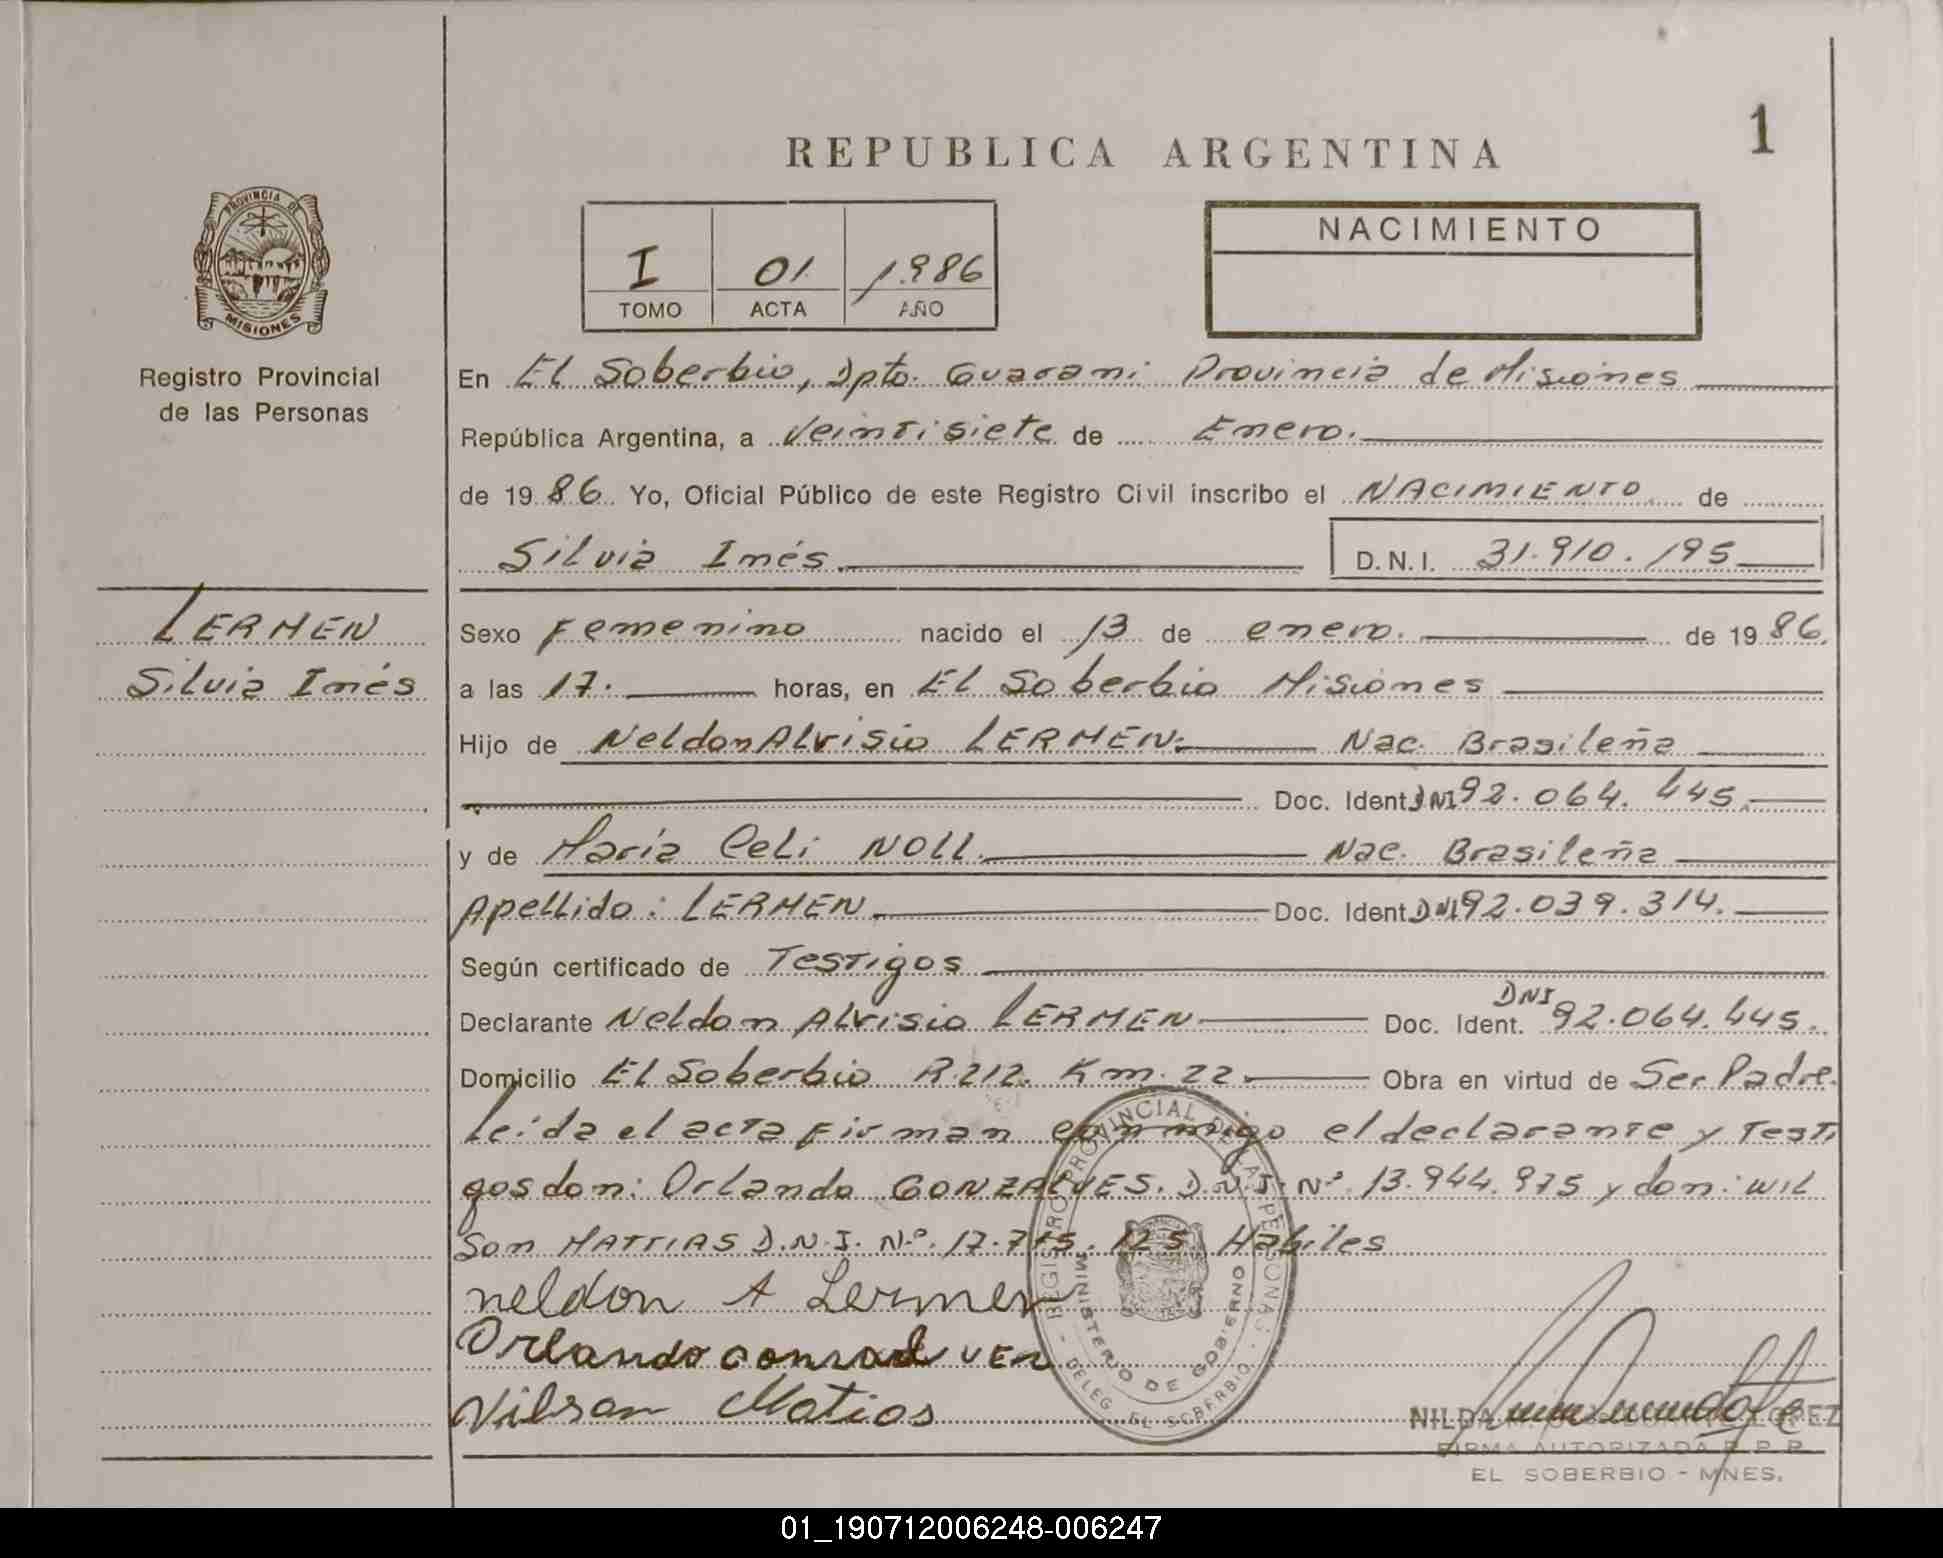 1
REPUBLICA ARGENTINA
PROVINCIA DE
MISIONES
Registro Provincial
de las Personas
I 01 1.986
TOMO ACTA AÑO
NACIMIENTO
En El Soberbio, Dpto. Guarani Provincia de Misiones
República Argentina, a Veintisiete de Enero.
de 19 86 Yo, Oficial Público de este Registro Civil inscribo el NACIMIENTO de
Silvia Inés. D.N.I. 31.910.195
LERMEN
Silvia Inés
Sexo Femenino nacido el 13 de enero. de 19 86.
a las 17. horas, en El Soberbio Misiones
Hijo de Neldon Alvisio LERMEN. Nac. Brasileña
Doc. Ident. DNI 92.064.445.
y de María Celi NOLL. Nac. Brasileña
Apellido: LERMEN. Doc. Ident. DNI 92.039.314.
Según certificado de Testigos
Declarante Neldon Alvisio LERMEN Doc. Ident. DNI 92.064.445.
Domicilio El Soberbio R.212. Km. 22. Obra en virtud de Ser Padre.
Leída el acta firman conmigo el declarante y Testi
gos don: Orlando GONZALVES. D.N.I. Nº. 13.944.975 y don: WIL
Son MATTIAS D.N.I. Nº. 17.715.125 Habiles
neldon A Lermen
Orlando
Vilson Matios
REGISTRO PROVINCIAL DE LAS PERSONAS - DELEG. EL SOBERBIO -
MINISTERIO DE GOBIERNO
NILDA LOPEZ
FIRMA AUTORIZADA R.P.P.
EL SOBERBIO - MNES.
01_190712006248-006247